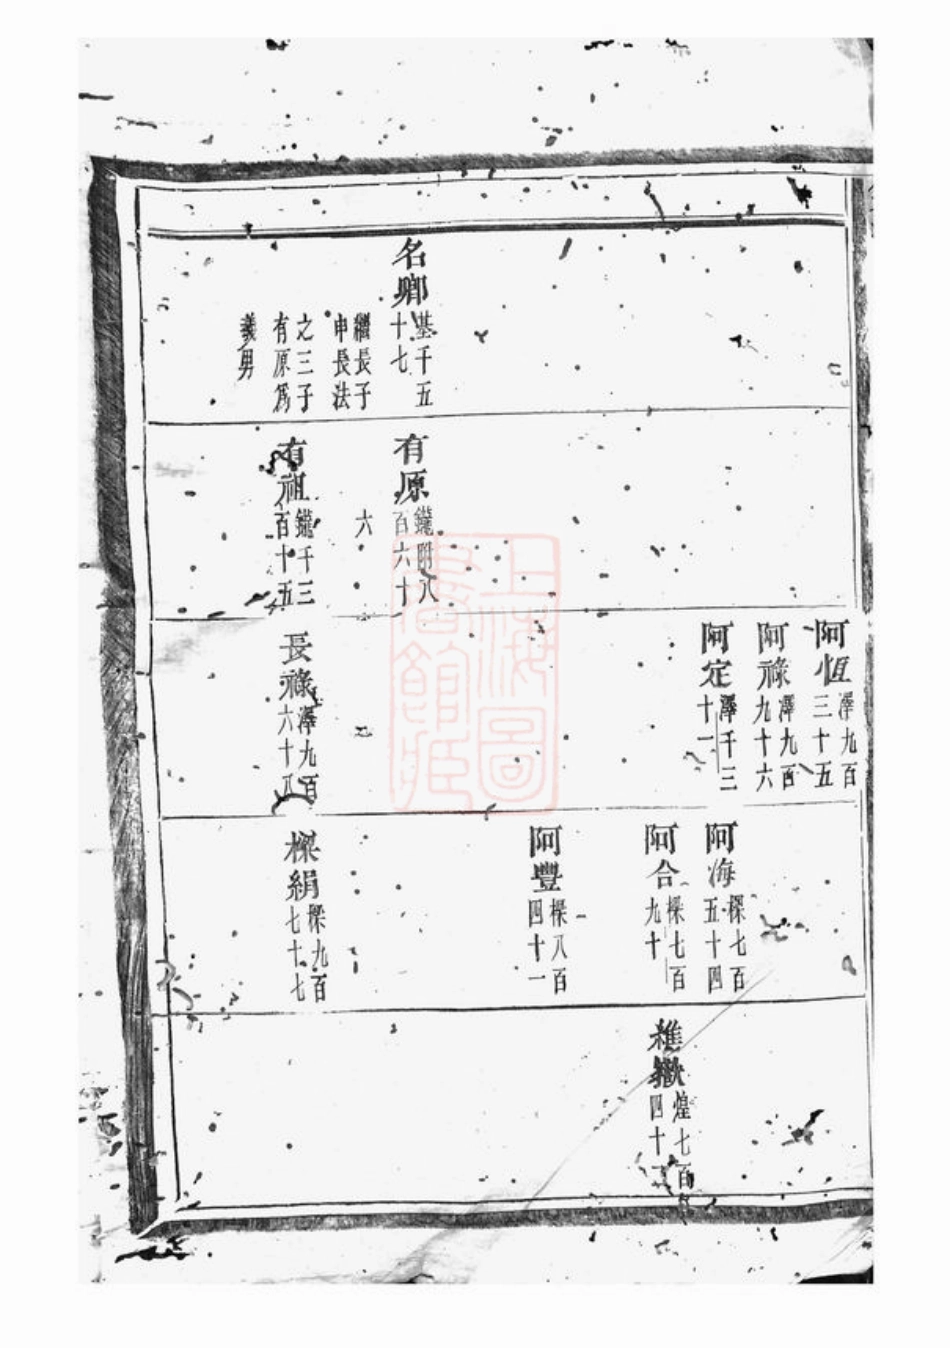 名鄉
基千五
十七
繼長子
申長法
之三子
有原為
義男
有原
鑨附八
百六十
六
有祖
鑨千三
百十五
阿恆
澤九百
三十五
阿祿
澤九百
九十六
阿定
澤千三
十一
長祿
澤九百
六十八
阿海
樑七百
五十四
阿合
樑七百
九十
阿豐
樑八百
四十一
樑絹
樑九百
七十七
煌七百
四十
上海圖
書館藏